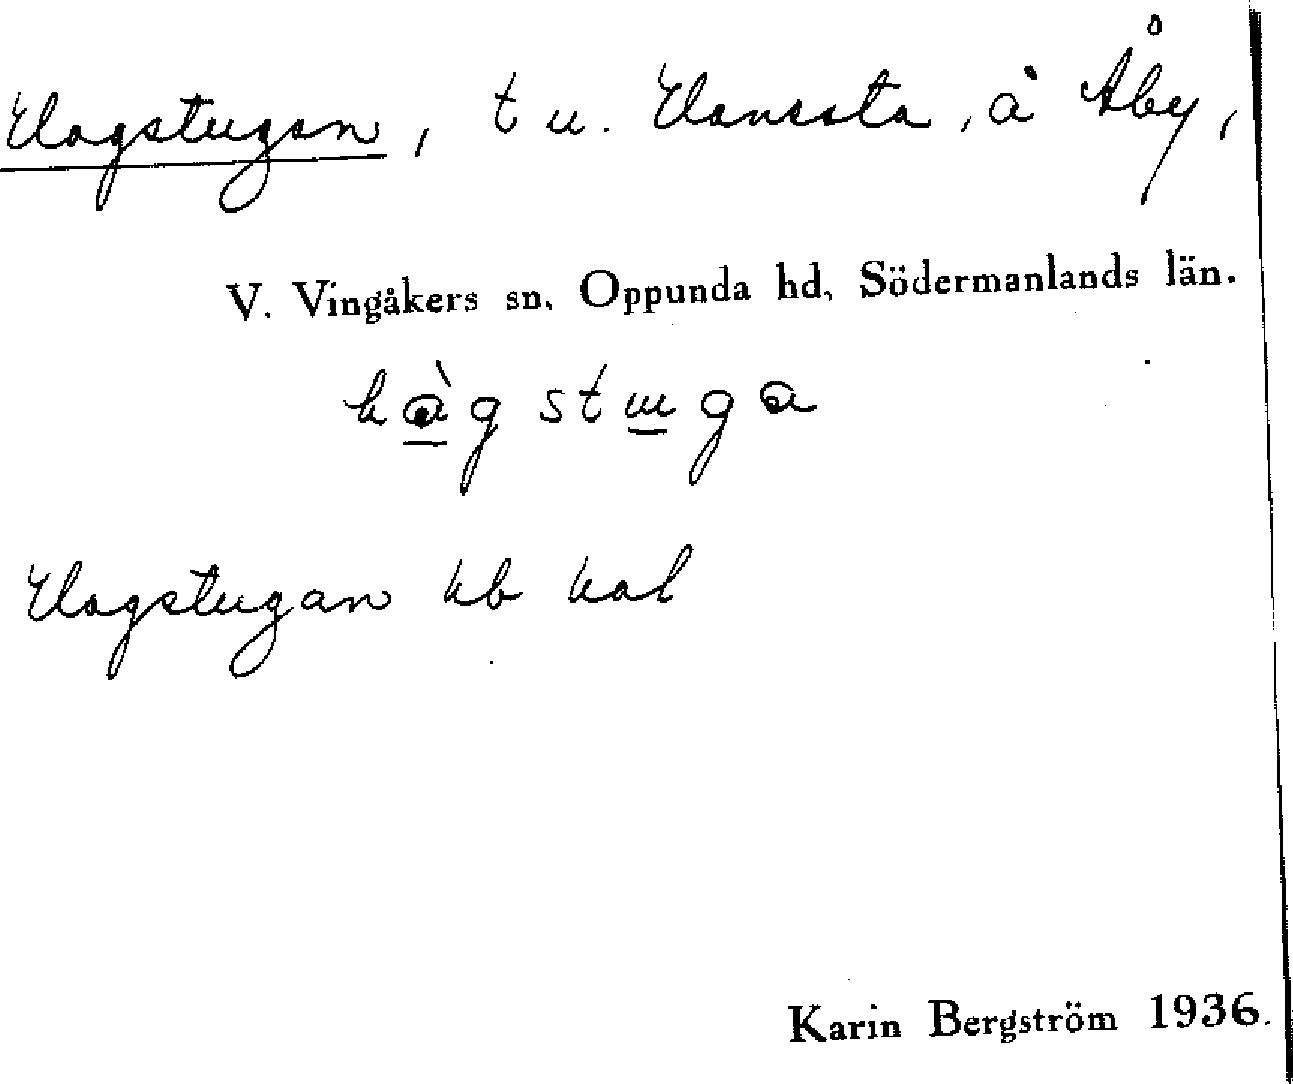 Hagstugan, t u. Hansesta, å Åby,
V. Vingåkers sn, Oppunda hd, Södermanlands län.
hàgstuga
Hagstugan kb
Karin Bergström 1936.